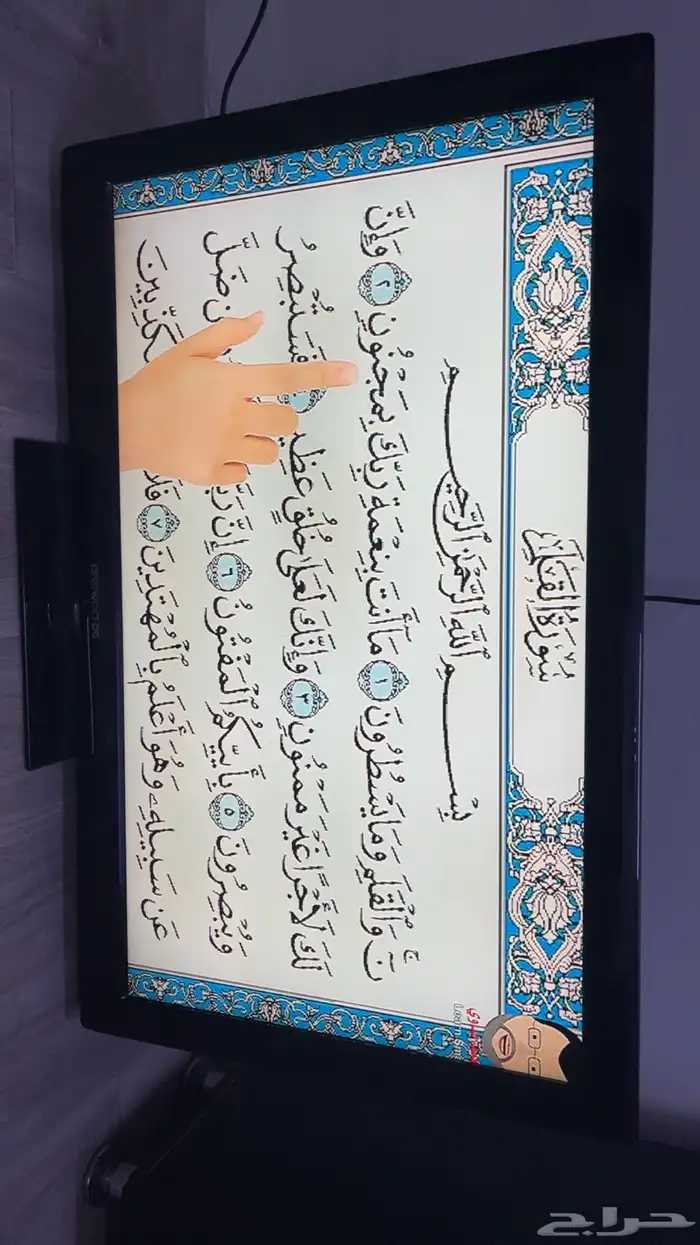 سُورَةُ الْقَلَمِ
بِسْمِ اللَّهِ الرَّحْمَٰنِ الرَّحِيمِ
نٓ وَالْقَلَمِ وَمَا يَسْطُرُونَ ١ مَا أَنتَ بِنِعْمَةِ رَبِّكَ بِمَجْنُونٍ ٢ وَإِنَّ
لَكَ لَأَجْرًا غَيْرَ مَمْنُونٍ ٣ وَإِنَّكَ لَعَلَىٰ خُلُقٍ عَظِيمٍ فَسَتُبْصِرُ
وَيُبْصِرُونَ ٥ بِأَييِّكُمُ الْمَفْتُونُ ٦ إِنَّ ضَلَّ
عَن سَبِيلِهِ وَهُوَ أَعْلَمُ بِالْمُهْتَدِينَ ٧ فَلَا
DAEWOO
حراج